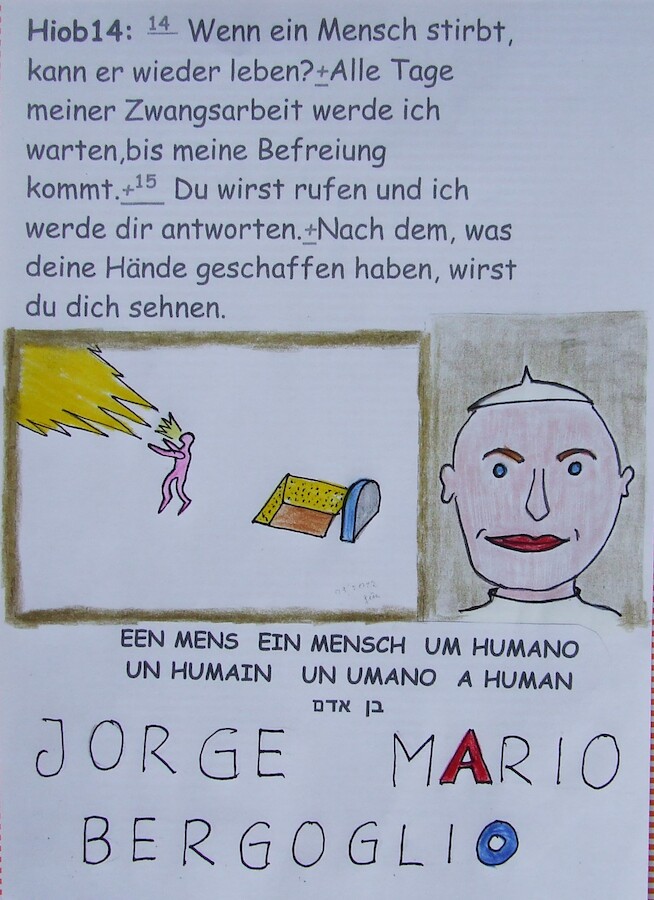 Hiob14: 14 Wenn ein Mensch stirbt,
kann er wieder leben?+Alle Tage
meiner Zwangsarbeit werde ich
warten,bis meine Befreiung
kommt.+15 Du wirst rufen und ich
werde dir antworten.+Nach dem, was
deine Hände geschaffen haben, wirst
du dich sehnen.
EEN MENS EIN MENSCH UM HUMANO
UN HUMAIN UN UMANO A HUMAN
בן אדם
JORGE MARIO
BERGOGLIO